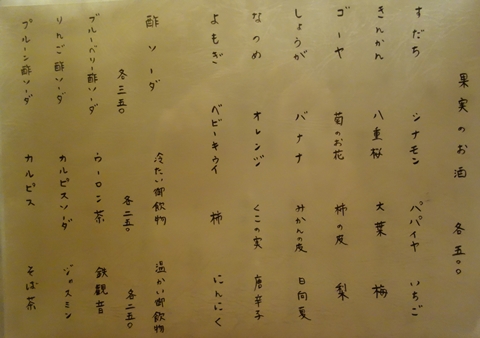 果実のお酒 各五〇〇
すだち シナモン パパイヤ いちご
きんかん 八重桜 大葉 梅
ゴーヤ 菊のお花 柿の皮 梨
しょうが バナナ みかんの皮 日向夏
なつめ オレンジ くこの実 唐辛子
よもぎ ベビーキウイ 柿 にんにく
酢ソーダ
各三五〇
ブルーベリー酢ソーダ
りんご酢ソーダ
プルーン酢ソーダ
冷たい御飲物
各二五〇
ウーロン茶
カルピスソーダ
カルピス
温かい御飲物
各二五〇
鉄観音
ジャスミン
そば茶